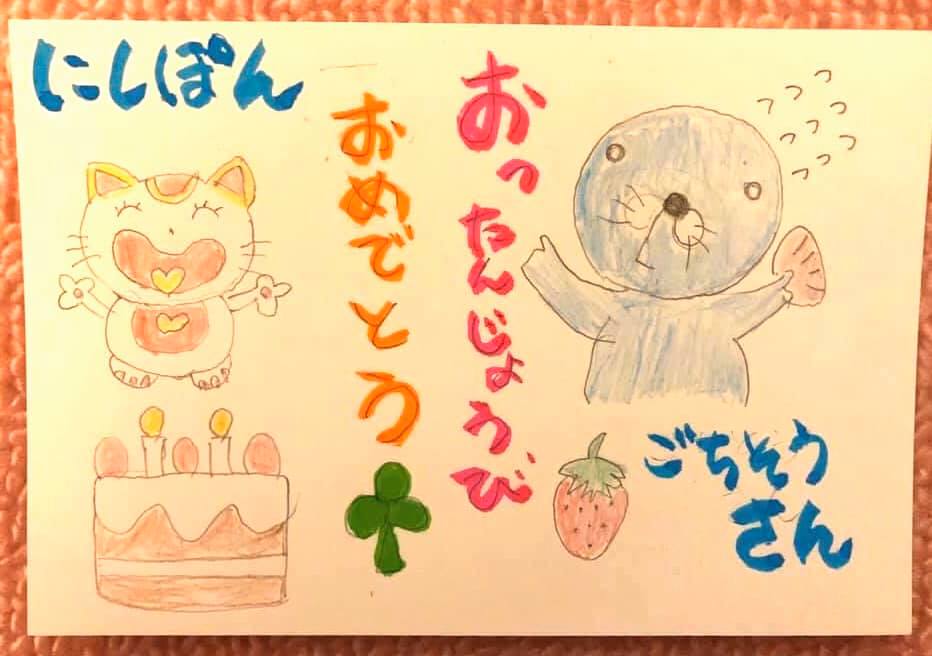 にしぽん
おったんじょうび
おめでとう
ごちそう
さん